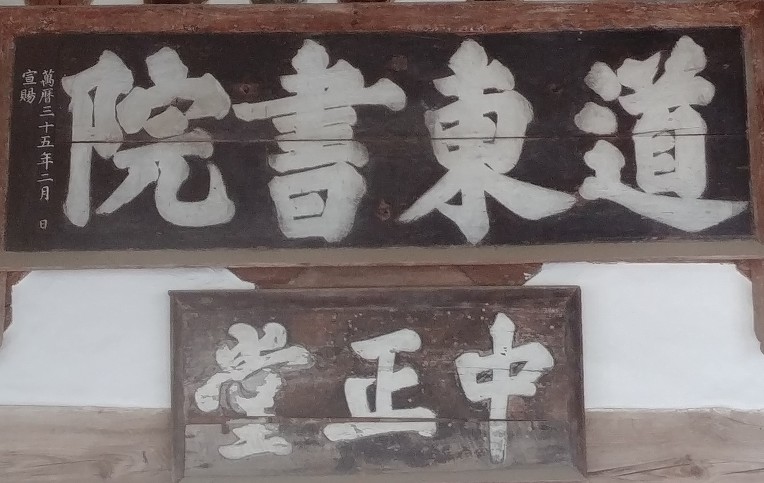 道東書院
萬曆三十五年二月 日
宣賜
中正堂